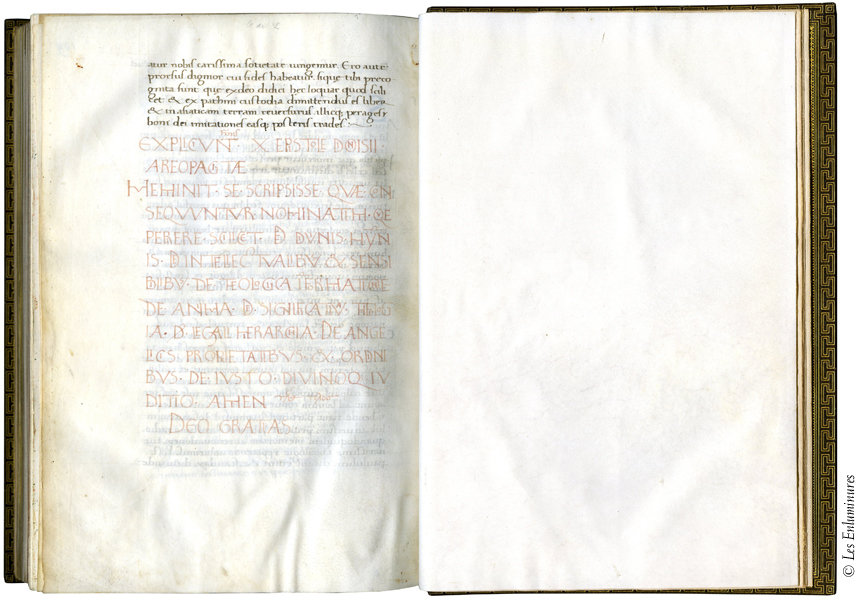 atur nobis carissima societate iungemur. Ero aute
prorsus dignior cui fides habeatur. sique tibi preco
gnita sunt que ex deo didici hec loquar quod scili
cet & ex pathmi custodia dimittendus es liber
& in asiaticam terram reuersurus. illicq; perages
boni dei imitationes easq; posteris trades.
EXPLICVNT · X EPISTOLE DIONISII
AREOPAGITÆ
MEMINIT · SE · SCRIPSISSE · QVÆ
SEQVVNTVR NOMINATIM
PERERE · SCILICET · DE DIVINIS
DE INTELLECTVALIBVS & SENSI
BILIBVS · DE THEOLOGICA
DE ANIMA
DE ANGE
LICIS PROPRIETATIBVS · & · ORDINI
BVS · DE · IVSTO · DIVINOQ · IV
DITIO · AMEN
DEO GRATIAS
© Les Enluminures